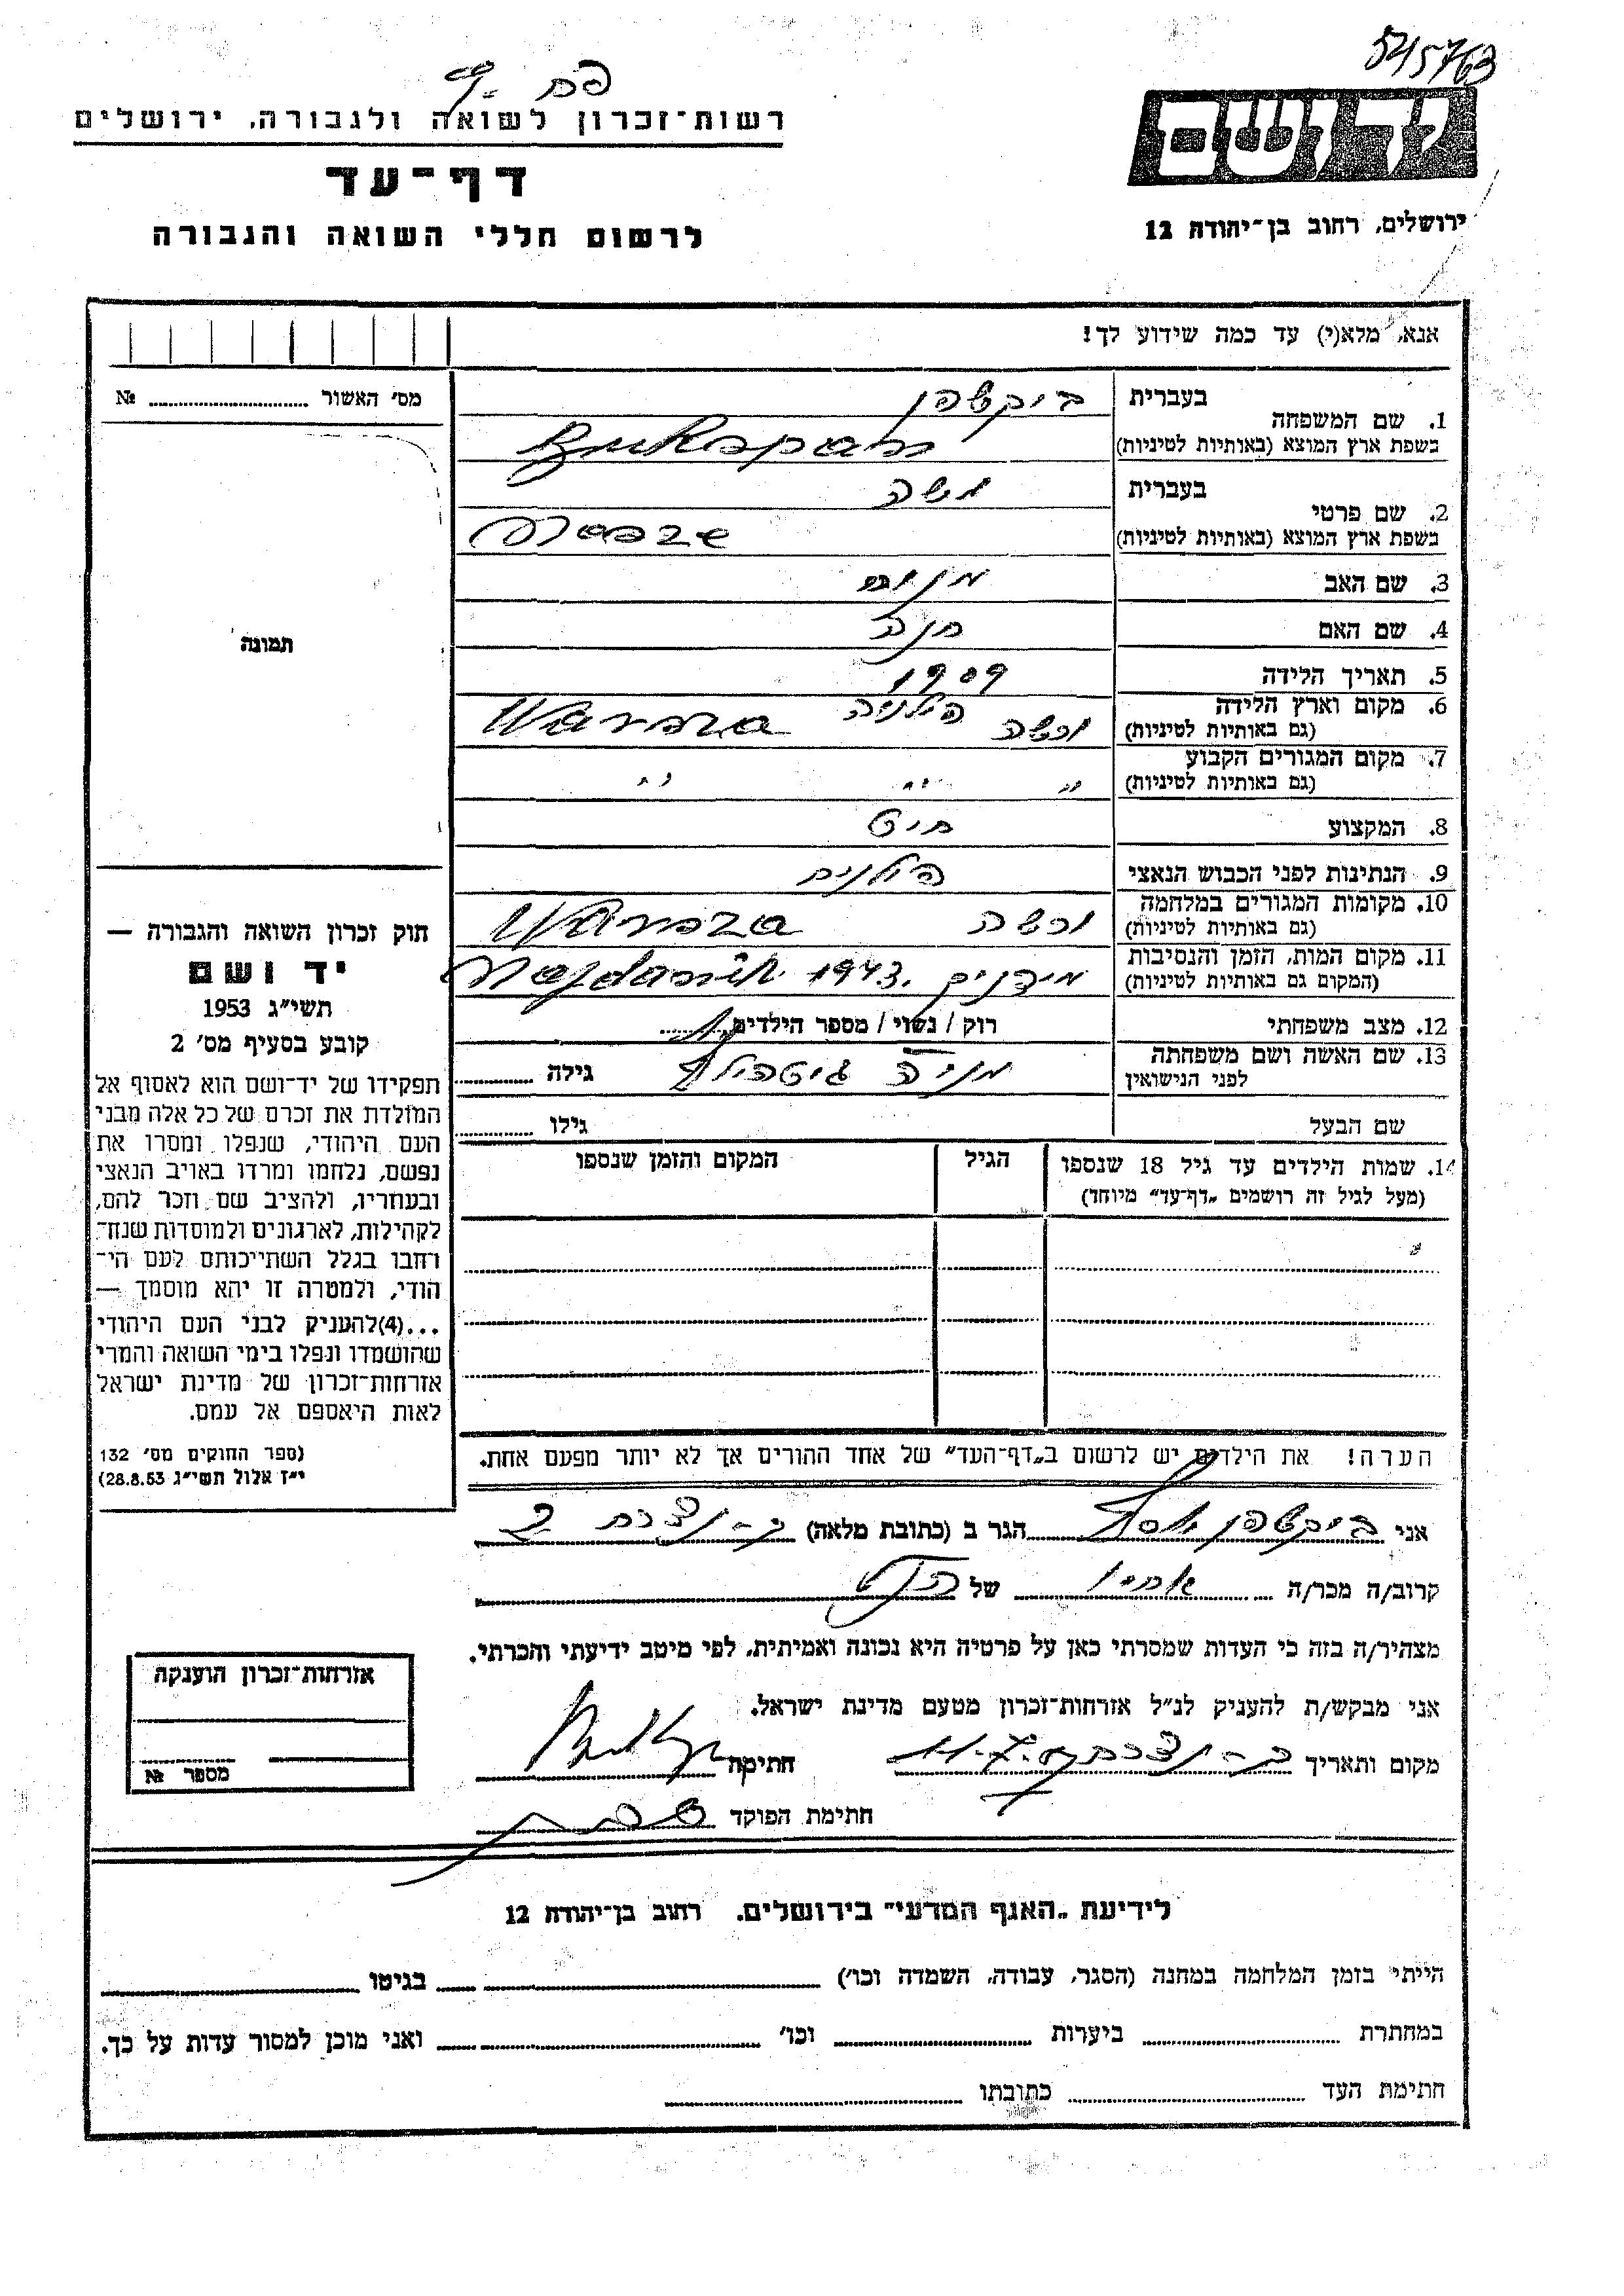 545763
רשות־זכרון לשואה ולגבורה, ירושלים
דף־עד
לרשום חללי השואה והגבורה
יד ושם
ירושלים, רחוב בן־יהודה 12
אנא, מלא(י) עד כמה שידוע לך!
1. שם המשפחה
בעברית
ביקשפן
בשפת ארץ המוצא (באותיות לטיניות)
2. שם פרטי
בעברית
משה
בשפת ארץ המוצא (באותיות לטיניות)
3. שם האב
4. שם האם חנה
5. תאריך הלידה 1909
6. מקום וארץ הלידה
(גם באותיות לטיניות)
ורשה פולניה Warsza
7. מקום המגורים הקבוע
(גם באותיות לטיניות)
" " "
8. המקצוע חיט
9. הנתינות לפני הכבוש הנאצי פולנית
10. מקומות המגורים במלחמה
(גם באותיות לטיניות)
ורשה Warsza
11. מקום המות, הזמן והנסיבות
(המקום גם באותיות לטיניות)
1943. Majdanik
12. מצב משפחתי רוק / נשוי / מספר הילדים
13. שם האשה ושם משפחתה
לפני הנישואין
מניה גילה
שם הבעל גילו
14. שמות הילדים עד גיל 18 שנספו
(מעל לגיל זה רושמים „דף־עד" מיוחד)
הגיל
המקום והזמן שנספו
הערה! את הילדים יש לרשום ב„דף־העד" של אחד ההורים אך לא יותר מפעם אחת.
מס' האשור №
תמונה
חוק זכרון השואה והגבורה —
יד ושם
תשי״ג 1953
קובע בסעיף מס' 2
תפקידו של יד־ושם הוא לאסוף אל
המולדת את זכרם של כל אלה מבני
העם היהודי, שנפלו ומסרו את
נפשם, נלחמו ומרדו באויב הנאצי
ובעוזריו, ולהציב שם וזכר להם,
לקהילות, לארגונים ולמוסדות שנח־
רחבו בגלל השתייכותם לעם הי־
הודי, ולמטרה זו יהא מוסמך —
...(4) להעניק לבני העם היהודי
שהושמדו ונפלו בימי השואה והמרי
אזרחות־זכרון של מדינת ישראל
לאות היאספם אל עמם.
(ספר החוקים מס' 132
י״ז אלול תשי״ג 28.8.53)
אני ביקשפן יוסף הגר ב (כתובת מלאה)
קרוב/ה מכר/ה אחיו של
מצהיר/ה בזה כי העדות שמסרתי כאן על פרטיה היא נכונה ואמיתית, לפי מיטב ידיעתי והכרתי.
אני מבקש/ת להעניק לנ״ל אזרחות־זכרון מטעם מדינת ישראל.
מקום ותאריך חתימה
חתימת הפוקד
אזרחות־זכרון הוענקה
מספר №
לידיעת „האגף המדעי" בירושלים, רחוב בן־יהודה 12
הייתי בזמן המלחמה במחנה (הסגר, עבודה, השמדה וכו') בגיטו
במחתרת ביערות וכו' ואני מוכן למסור עדות על כך.
חתימת העד כתובתו